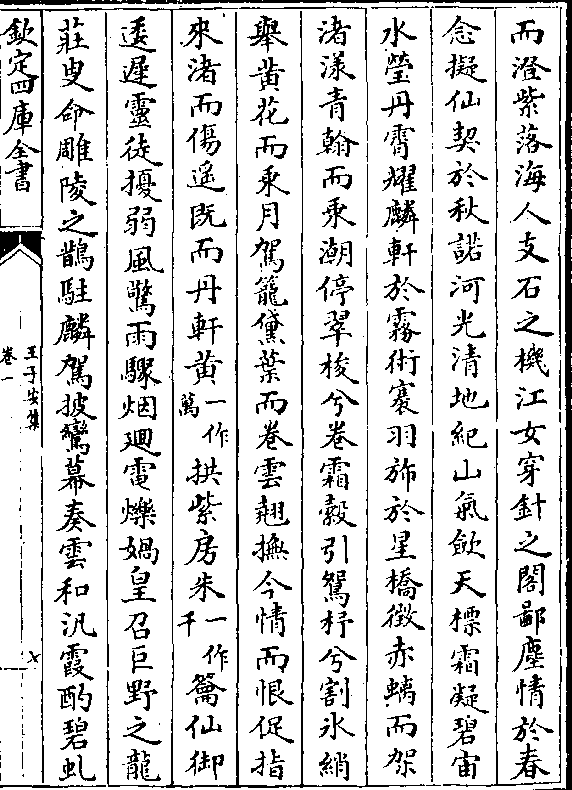 而澄紫落海人支石之機江女穿針之閣鄙塵情於春
念擬仙契於秋諾河光清地紀山氣歛天標霜凝碧宙
水瑩丹霄耀麟軒於霧術褰羽斾於星橋徴赤螭而架
渚漾青翰而乘潮停翠梭兮卷霜縠引鴛杼兮割氷綃
舉黄花而乗月駕籠黛葉而卷雲翹撫今情而恨促指
來渚而傷遥既而丹軒黄一作萬拱紫房朱一作千籥仙御
逶遲靈徒擾弱風驚雨驟烟廻電爍媧皇召巨野之龍
莊叟命雕陵之鵲駐麟駕披鸞幕奏雲和汎霞酌碧虬
欽定四庫全書
王子安集
卷一